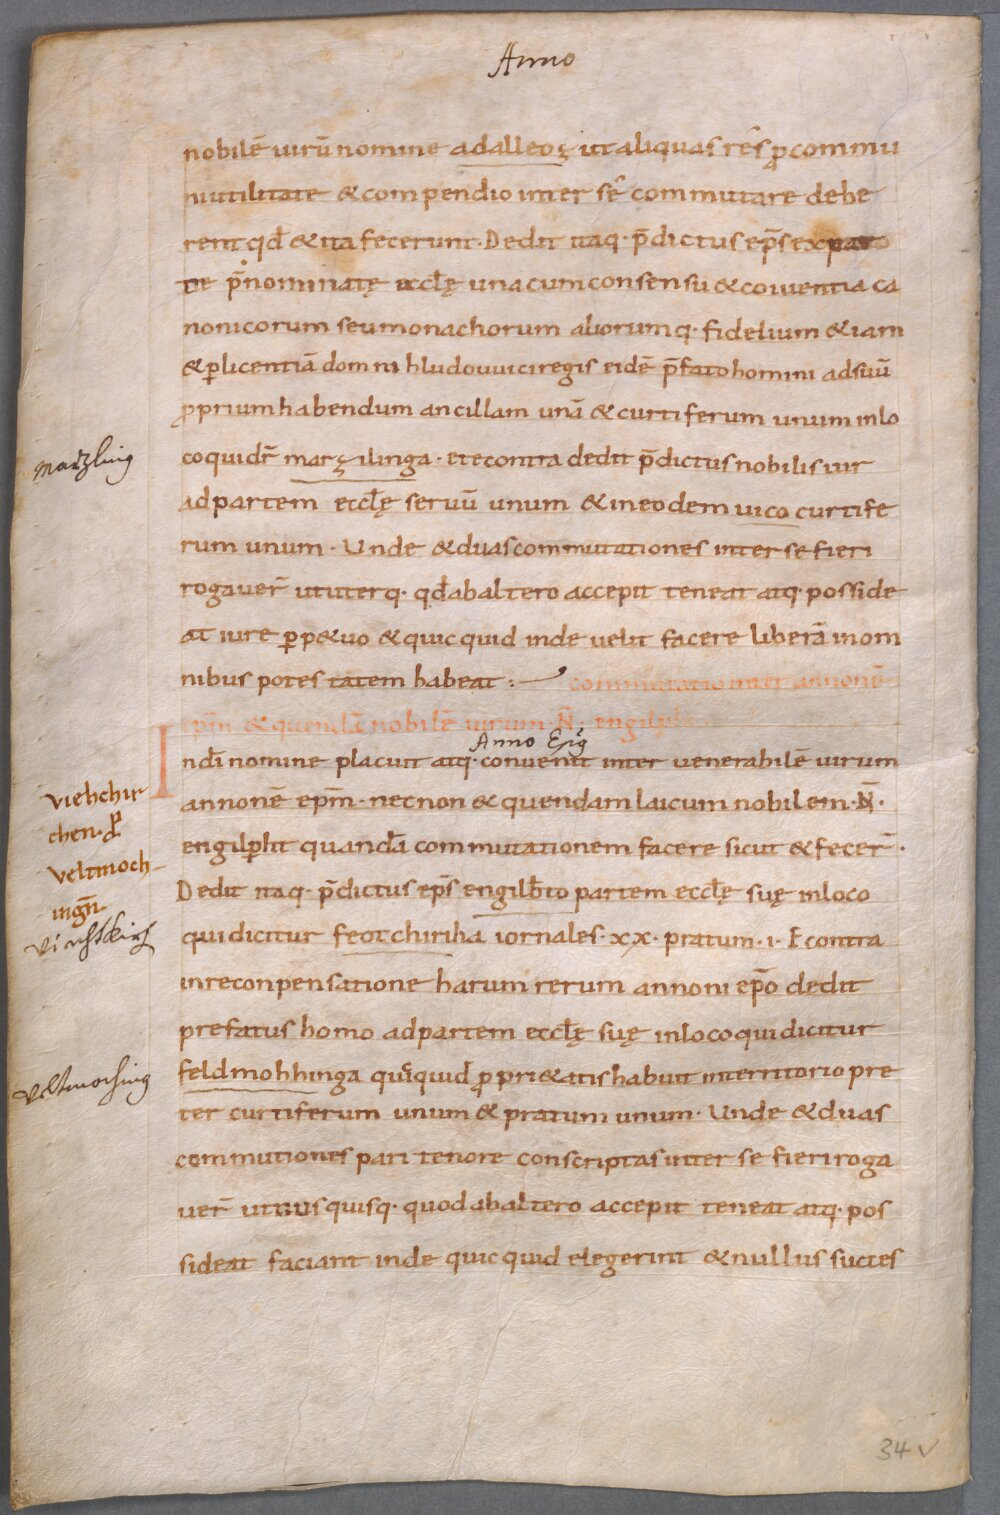 Anno
nobilē uirū nomine adalleoz ut aliquas rēs ꝓ commu
ni utilitate & compendio inter sē commutare debe
rent qđ & ita fecerunt. Dedit itaq. p̄dictus ep̄s ex par
te p̄nominatę eccłę una cum consensu & coniuentia ca
nonicorum seu monachorum aliorumq. fidelium & iam
& ꝑ licentiā domni hludouuici regis eidē p̄fato homini ad suū
ꝓprium habendum ancillam unā & curtiferum unum in lo
marzling
co qui dr̄ marzilinga. et econtra dedit p̄dictus nobilis uir
ad partem eccłę seruū unum & in eodem uico curtife
rum unum. Unde & duas commutationes inter se fieri
rogauer̄ ut uterq. qđ ab altero accepit teneat atq. posside
at iure ꝑp&uo & quicquid inde uelit facere liberā in om
nibus potestatem habeat:
commutatio inter annonē
ep̄m & quendā nobilē uirum. N̄. engilp
Anno Epg
In dī nomine placuit atq. conuenit inter uenerabilē uirum
viehchir
annonē ep̄m. necnon & quendam laicum nobilem. N̄.
chen. &
engilꝑht quandā commutationem facere sicut & fecer̄.
veltmoch-
Dedit itaq. p̄dictus ep̄s engilb̄to partem eccłę suę in loco
ingn̄
viechtkirch
qui dicitur feotchiriha iornales. xx. pratum. i. Econtra
in reconpensatione harum rerum annoni ep̄o dedit
prefatus homo ad partem eccłę suę in loco qui dicitur
veltmoching
feldmohhinga quicquid ꝓpri&atis habuit in territorio pre
ter curtiferum unum & pratum unum. Unde & duas
commutiones pari tenore conscriptas inter se fieri roga
uer̄ ut unusquisq. quod ab altero accepit teneat atq. pos
sideat faciant inde quicquid elegerint & nullus succes
34 v